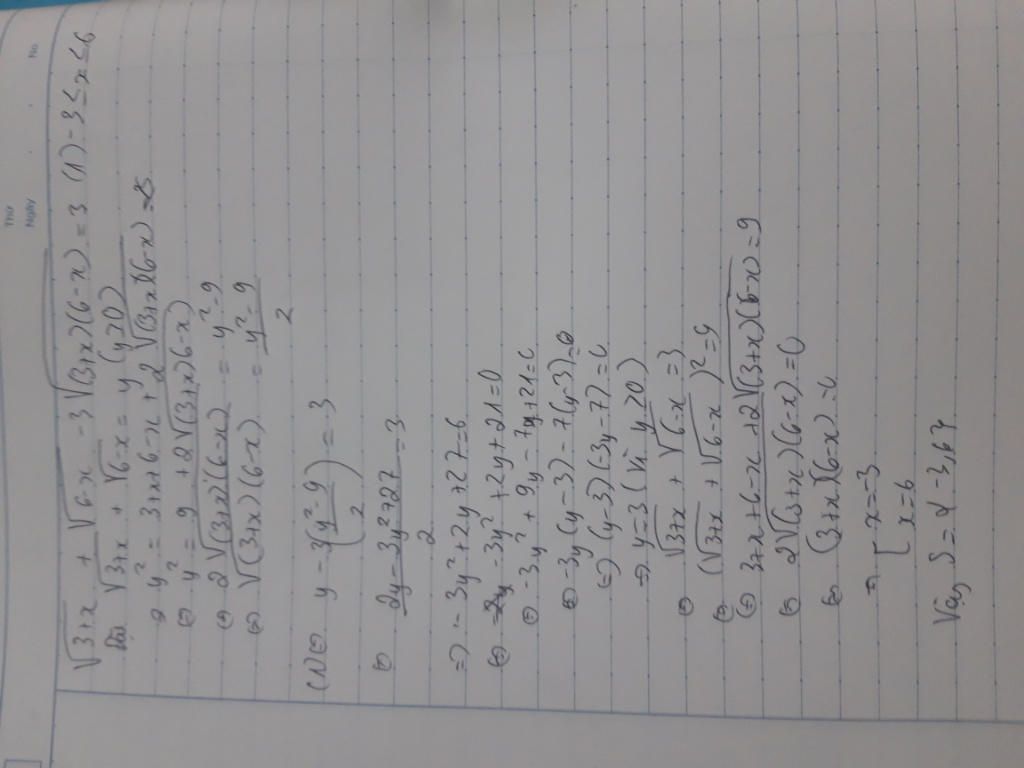 Thứ
Ngày
No
√(3+x) + √(6-x) - 3√((3+x)(6-x)) = 3 (1) -3 ≤ x ≤ 6
Đặt √(3+x) + √(6-x) = y (y≥0)
⇒ y² = 3+x+6-x+2√((3+x)(6-x))
⇔ y² = 9 + 2√((3+x)(6-x))
⇔ 2√((3+x)(6-x)) = y²-9
⇔ √((3+x)(6-x)) = (y²-9)/2
(1) ⇔ y - 3((y²-9)/2) = 3
⇔ (2y-3y²+27)/2 = 3
⇒ -3y²+2y+27=6
⇔ -3y²+2y+21=0
⇔ -3y²+9y-7y+21=0
⇔ -3y(y-3)-7(y-3)=0
⇔ (y-3)(3y-7)=0
⇒ y=3 (Vì y≥0)
⇔ √(3+x) + √(6-x) = 3
⇔ (√(3+x) + √(6-x))² = 9
⇔ 3+x+6-x+2√((3+x)(6-x)) = 9
⇔ 2√((3+x)(6-x)) = 0
⇔ (3+x)(6-x)=0
⇒ [x=-3
[x=6
Vậy S={-3,6}